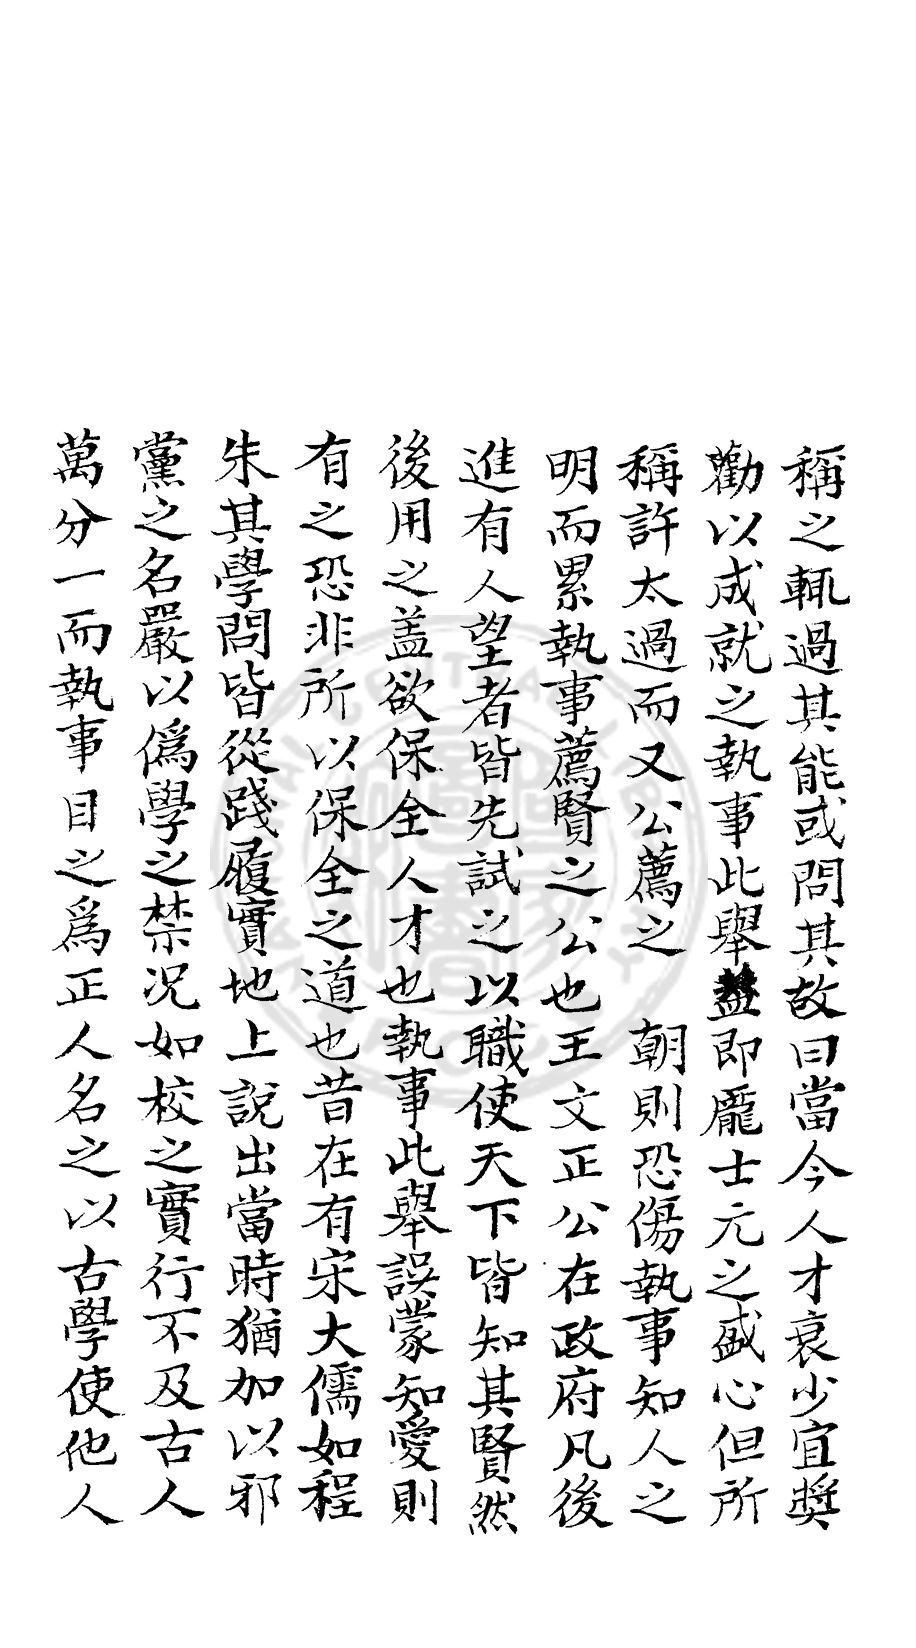 稱之輒過其能或問其故曰當今人才衰少宜獎
勸以成就之執事此舉蓋即龐士元之盛心但所
稱許太過而又公薦之　朝則恐傷執事知人之
明而累執事薦賢之公也王文正公在政府凡後
進有人望者皆先試之以職使天下皆知其賢然
後用之盖欲保全人才也執事此舉誤蒙知愛則
有之恐非所以保全之道也昔在有宋大儒如程
朱其學問皆從踐履實地上說出當時猶加以邪
黨之名嚴以偽學之禁況如校之實行不及古人
萬分一而執事目之為正人名之以古學使他人